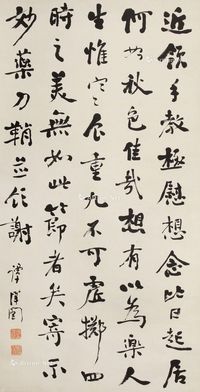 近領手教極慰想念比日起居
何如秋色佳哉想有以為樂人
生惟寒食重九不可虛擲四
時之美無如此節者矣寄示
妙藥刀鞘並領謝
譚澤闓